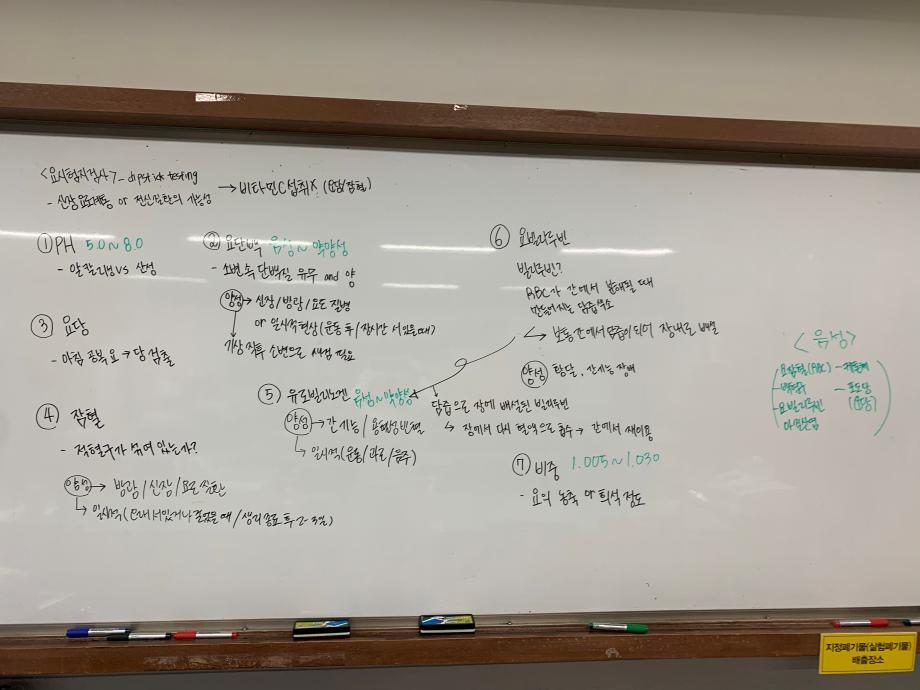 <요시험지검사> - dipstick testing
- 신장 요로계통 or 전신질환의 가능성
→ 비타민C 섭취X (요당/잠혈)
① PH 5.0~8.0
- 알칼리성 vs 산성
② 요단백 음성~약양성
- 소변 속 단백질 유무 and 양
양성 → 신장/방광/요도 질병
or 일시적 현상 (운동 후/장시간 서있을때)
기상 직후 소변으로 재검 필요
③ 요당
- 아침 공복 요 → 당 검출
④ 잠혈
- 적혈구가 섞여 있는가?
양성 → 방광/신장/요로 질환
↳ 일시적 (오래 서있거나 걸었을 때/생리 종료 후 2-3일)
⑤ 유로빌리노겐 음성~약양성
양성 → 간기능/용혈성 빈혈
↳ 일시적 (운동/과로/음주)
담즙으로 장에 배설된 빌리루빈
↳ 장에서 다시 혈액으로 흡수 → 간에서 재이용
⑥ 요빌리루빈
빌리루빈?
RBC가 간에서 분해될 때
만들어지는 담즙색소
보통 간에서 담즙이 되어 장내로 배설
양성 황달, 간기능 장애
⑦ 비중 1.005~1.030
- 요의 농축 or 희석 정도
<음성>
- 요잠혈(RBC)
- 요빌리루빈
- 아질산염
- 케톤체
- 포도당
(요당)
지정폐기물(실험폐기물)
배출장소